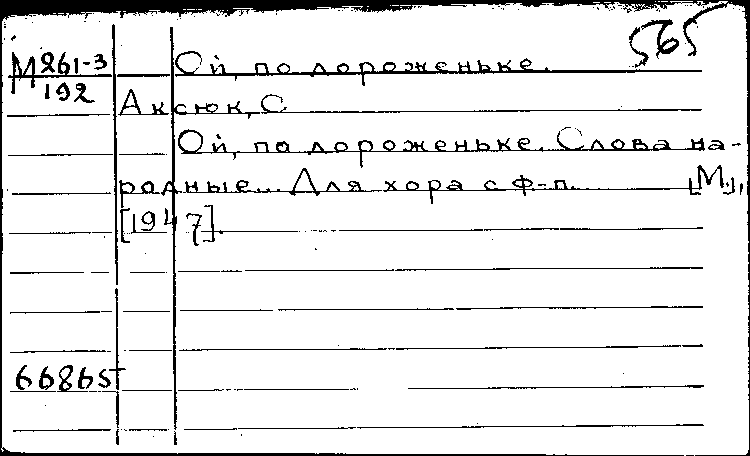 565
М 261-3
192
Ой, по дороженьке.
Аксюк, С
Ой, по дороженьке. Слова на-
родные... Для хора с ф-п. [М.],
[1947].
66865